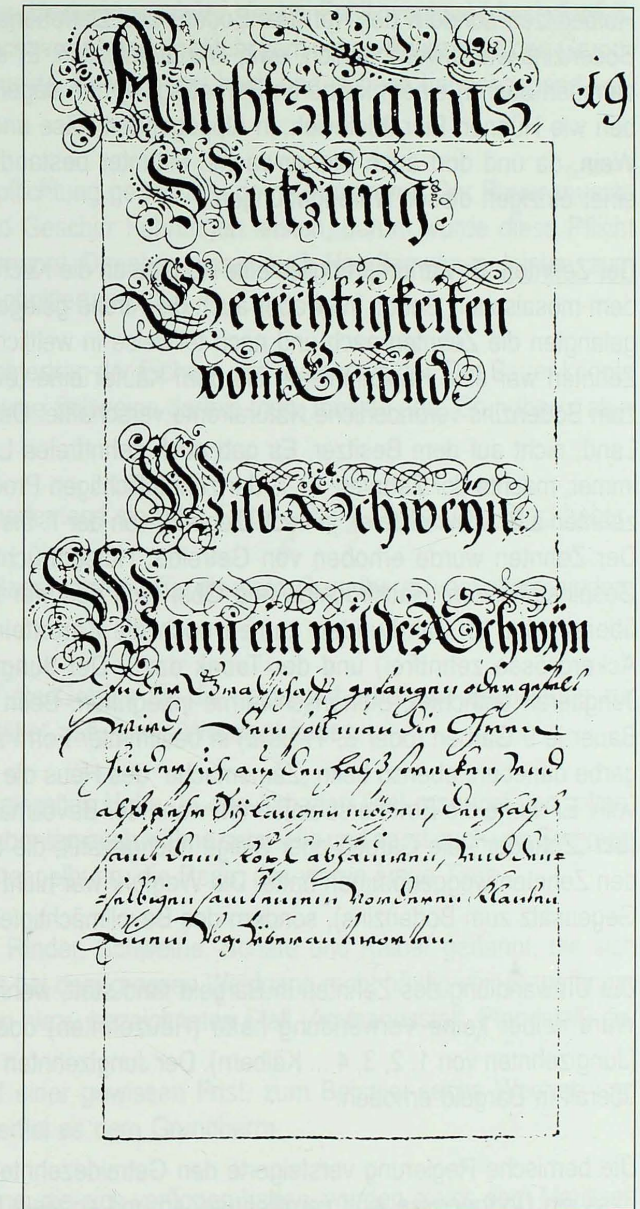 Ambtsmanns 19
Nutzung,
Gerechtigkeiten
vom Gewild,
Wild Schweyn.
Wann ein wildes Schwÿn
in der Graffschafft gefangen oder gefelt
wird, Dem soll man die Ohren
hindersich auf den halß strecken, und
alß sehr Sÿ langen mögen, den halß
samt dem Kopf abhauwen, und den-
selbigen samt einem Vorderen Klauwen
Einem Vogt überantworten.